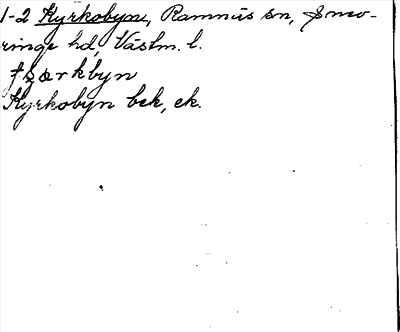 1-2 Kyrkobyn, Ramnäs sn, Snev-
ringe hd, Västm. l.
Kyrkobyn bek, ek.